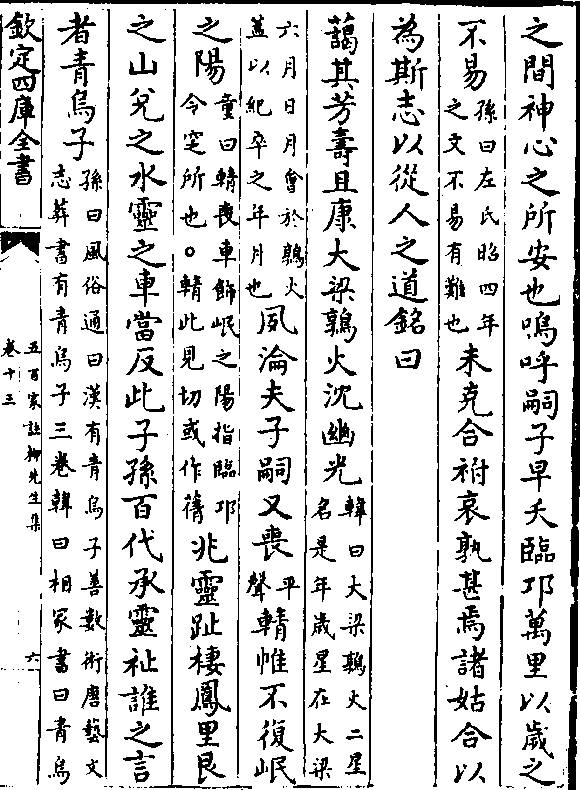 之間神心之所安也嗚呼嗣子早夭臨卭萬里以歲之
不易孫曰左氏昭四年之文不易有難也未克合祔哀孰甚焉諸姑合以
為斯志以從人之道銘曰
藹其芳壽且康大梁鶉火沈幽光韓曰大梁鶉火二星名是年歲星在大梁
六月日月會於鶉火蓋以紀卒之年月也夙淪夫子嗣又喪平聲輤帷不復岷
之陽童曰輤喪車飾岷之陽指臨卭令室所也○輤此見切或作蒨兆靈趾棲鳳里艮
之山兌之水靈之車當反此子孫百代承靈祉誰之言
者青烏子孫曰風俗通曰漢有青烏子善數術唐藝文志葬書有青烏子三卷韓曰相冢書曰青烏
欽定四庫全書
五百家註柳先生集
卷十三
六